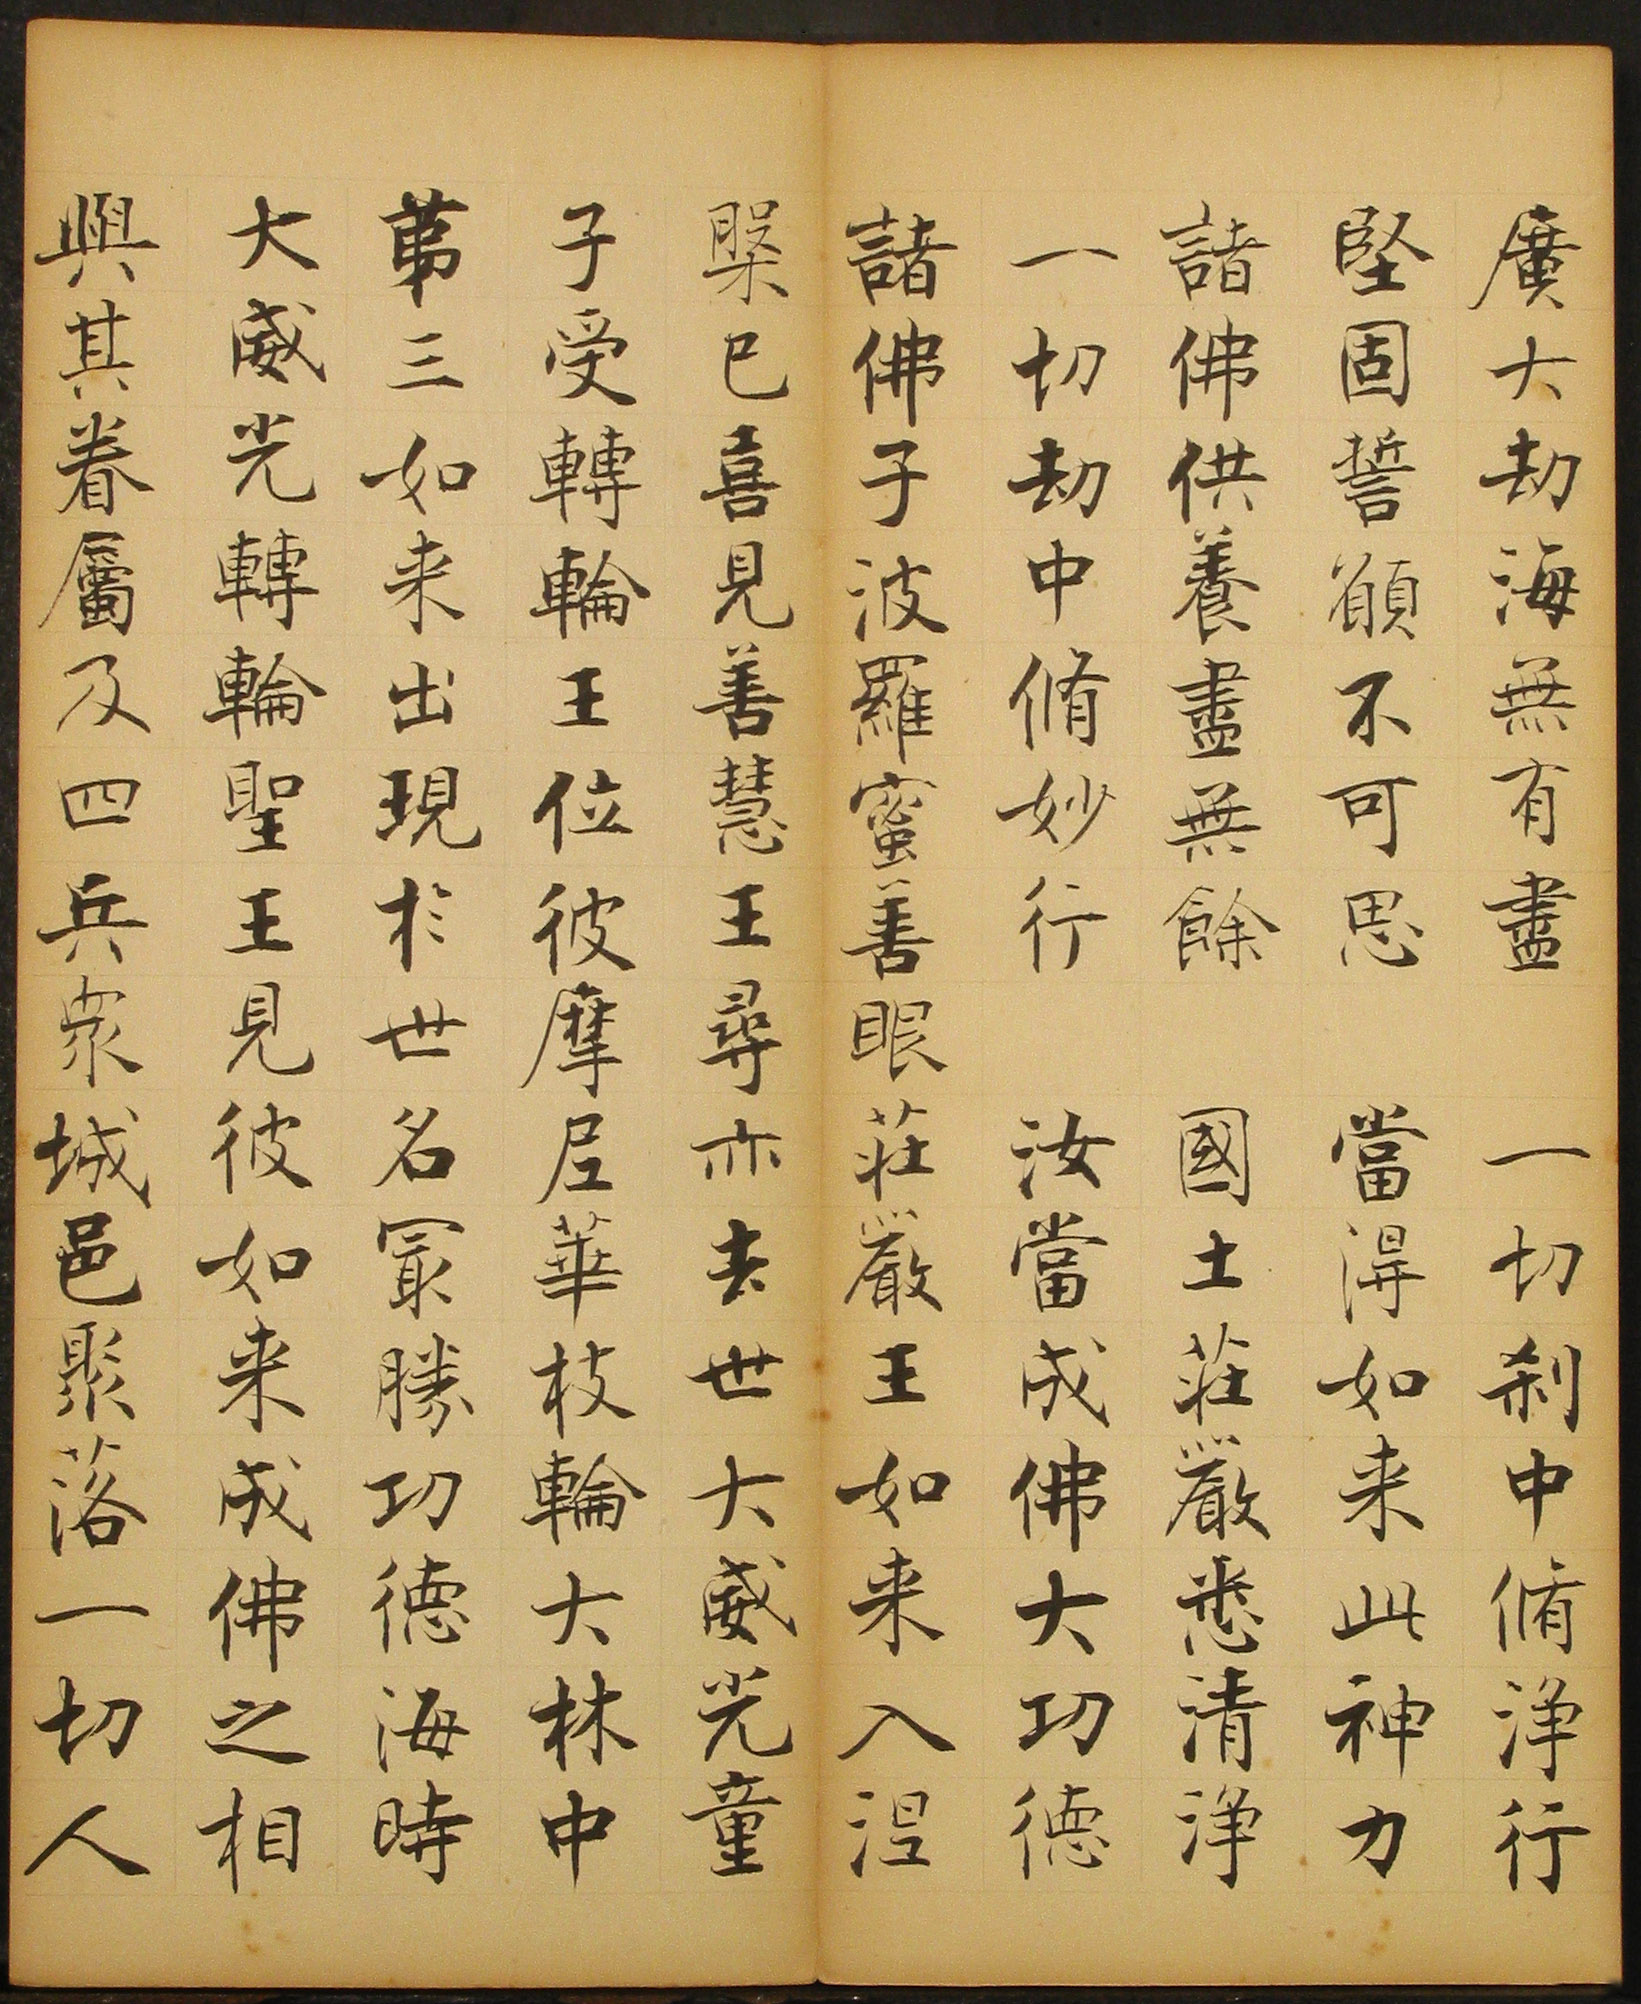 廣大劫海無有盡　一切刹中脩淨行
堅固誓願不可思　當淂如来此神力
諸佛供養盡無餘　國土莊嚴悉清淨
一切劫中脩妙行　汝當成佛大功德
諸佛子波羅蜜善眼莊嚴王如来入涅
槃已喜見善慧王尋亦去世大威光童
子受轉輪王位彼摩尼華枝輪大林中
苐三如来出現於世名冣勝功德海時
大威光轉輪聖王見彼如来成佛之相
與其眷屬及四兵衆城邑聚落一切人